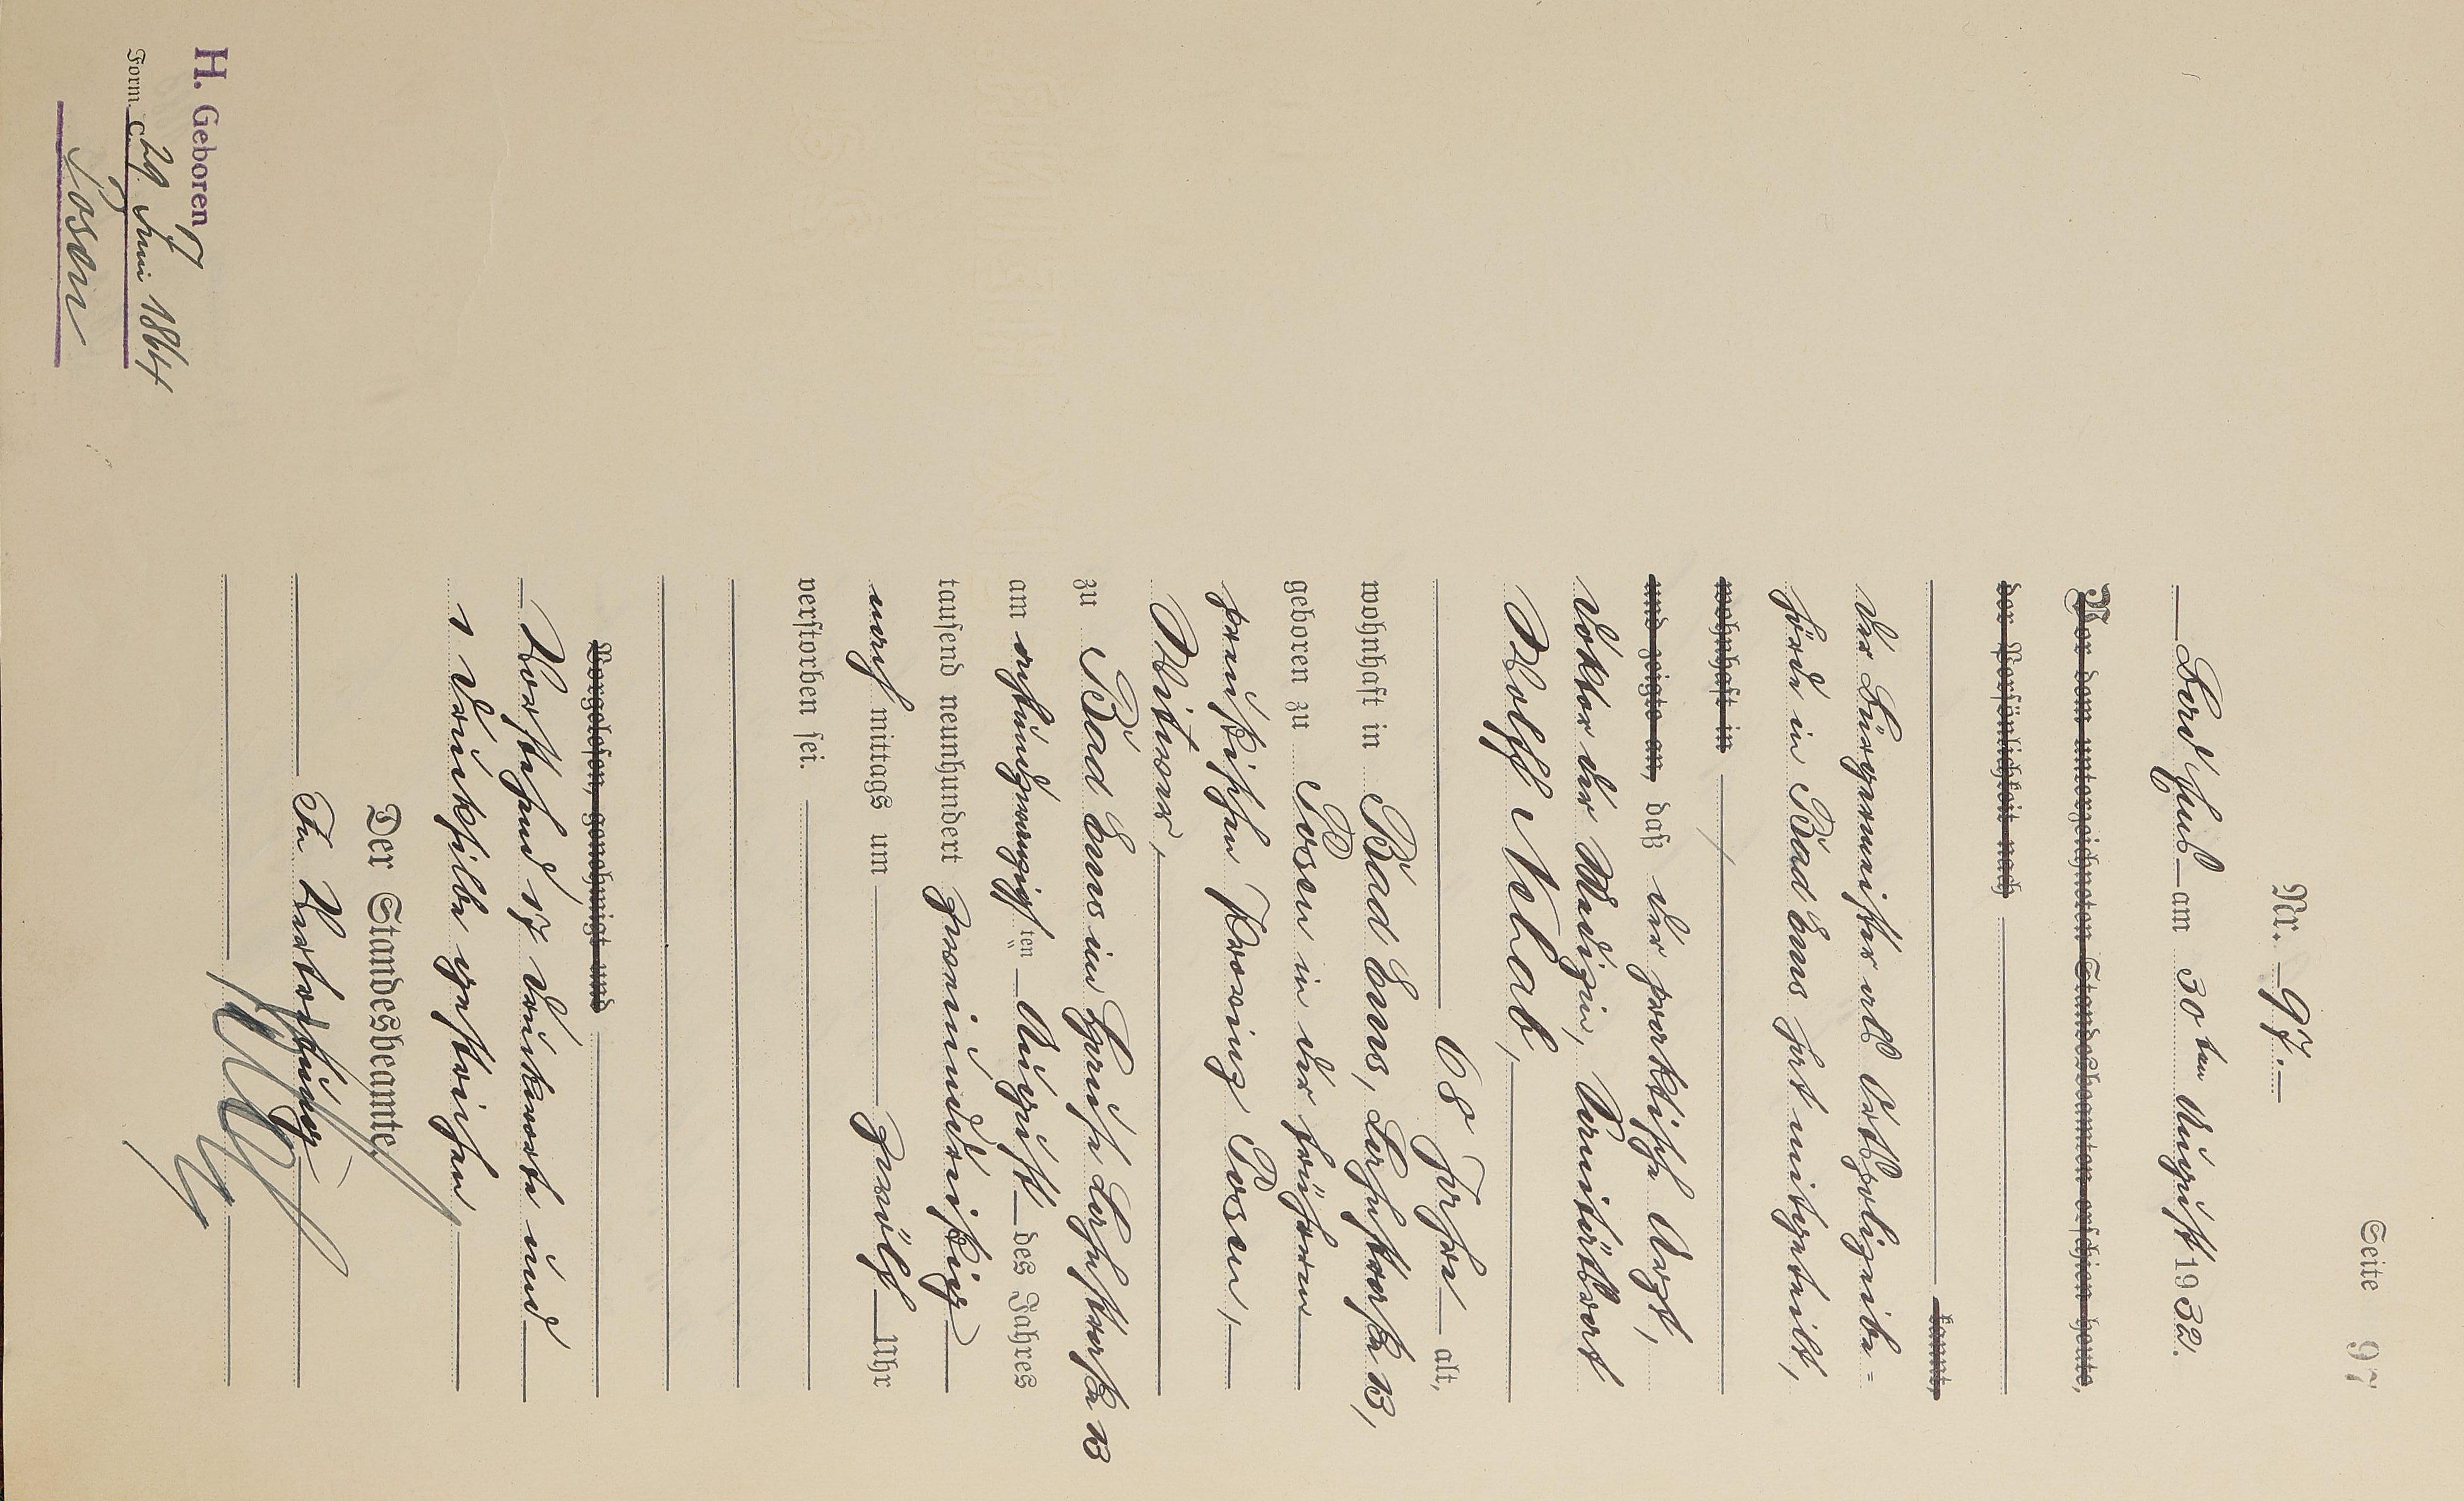 Seite 97
Nr. 97.
Bad Ems am 30ten August 1932.
Vor dem unterzeichneten Standesbeamten erschien heute,
der Persönlichkeit nach
kannt,
der Bürgermeister als Ortspolizeibe=
hörde in Bad Ems hat mitgeteilt,
wohnhaft in
und zeigte an, daß der praktische Arzt,
Doktor der Medizin, Sanitätsrat
Wolff
68 Jahre alt,
wohnhaft in Bad Ems, Lahnstraße 13,
geboren zu Posen in der früheren
preußischen Provinz Posen,
Witwer,
zu Bad Ems im Hause Lahnstraße 13
am achtundzwanzigsten August des Jahres
tausend neunhundert zweiunddreißig
nach mittags um zwölf Uhr
verstorben sei.
Vorgelesen, genehmigt und
Vorstehend 17 Druckworte und
1 Drucksilbe gestrichen
Der Standesbeamte.
In Vertretung
H. Geboren
Form. C. 29. Juni 1864
Posen